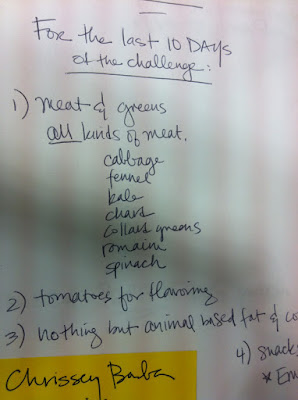 For the last 10 DAYS
of the challenge:
1) meat & greens
all kinds of meat.
cabbage
fennel
kale
chard
collard greens
romaine
spinach
2) tomatoes for flavoring
3) nothing but animal based fat & co
4) snacks
* Em
Chrissey Barba